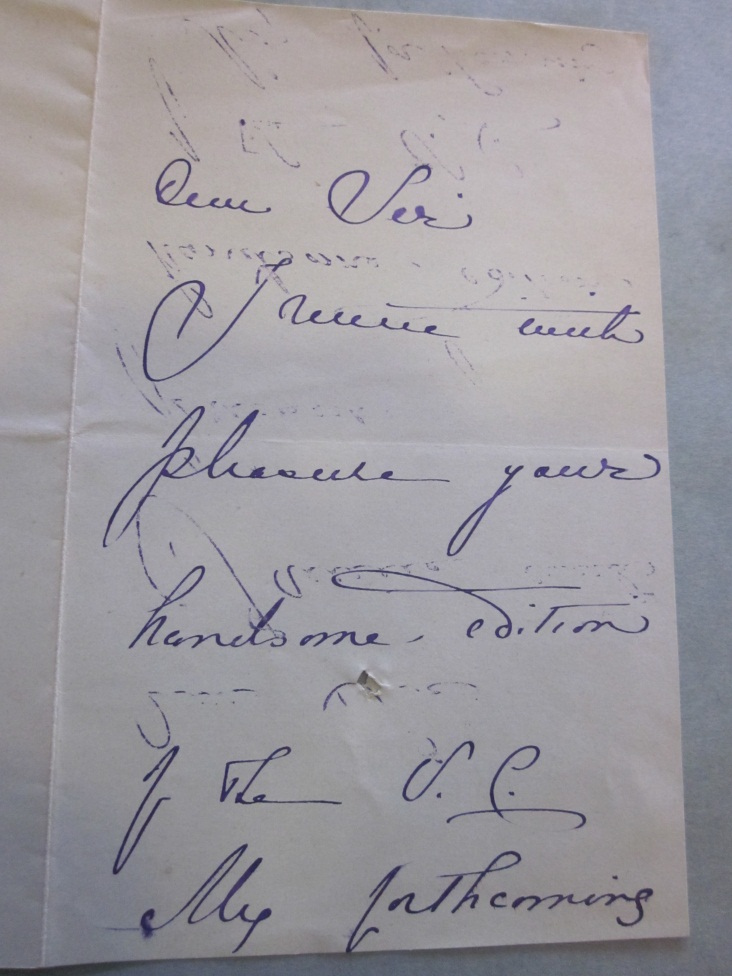 Dear Sir
I receive with
pleasure your
handsome edition
of the S. C.
My forthcoming